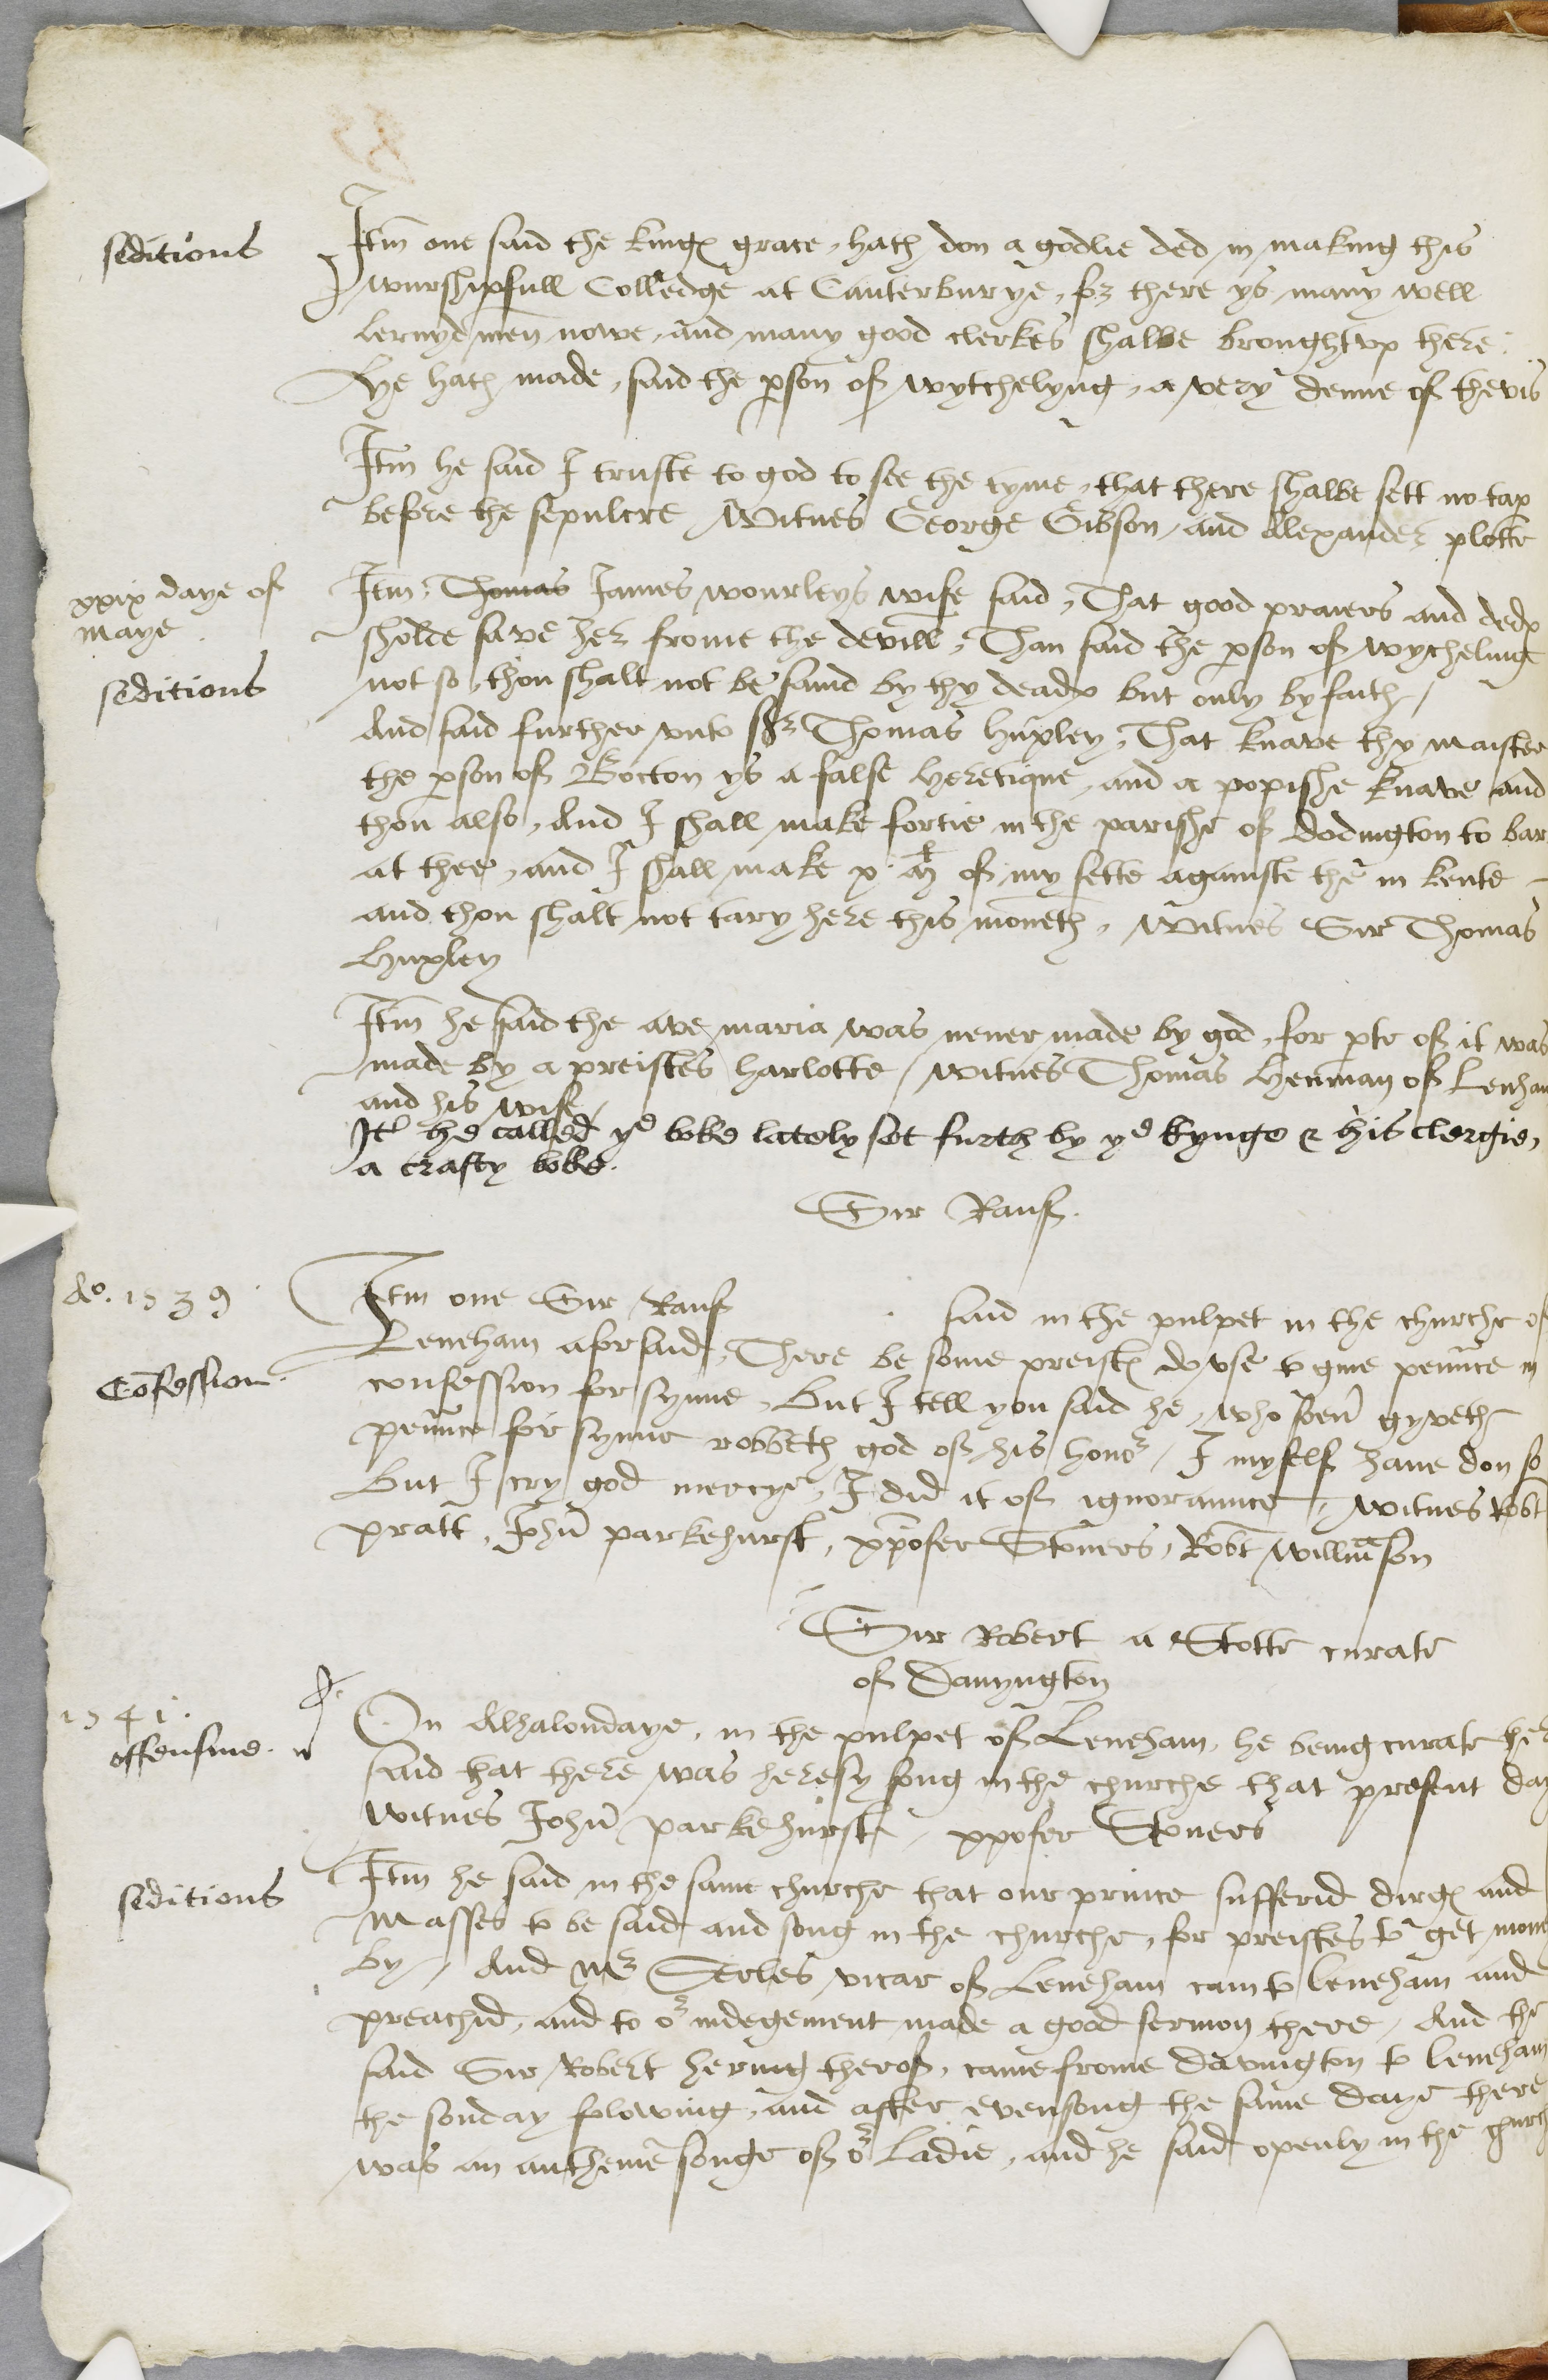 seditious
Itm one said the kings grace, hath don a godlie ded in making this
wurshipfull Colledge at Canterburye, for there ys many well
lernyd men nowe, and many good clerkes shalbe brought vp there.
Hye hath made, said the pson of wytchelyng, a very denne of thevis
Itm he said I truste to god to see the tyme, that there shalbe sett no tap
before the sepulcre Witnes George Gibson, and Alexander plotte
xxix daye of
maye
Itm, Thomas James wourleys wife said, That good praiers and deds
sholde save her frome the devill, Than said the pson of wycheling
seditious
not so, thou shalt not be saind by thy deads but only by faith,
And said further vnto Sr Thomas huxley, That knave thy maister
the pson of Bocton ys a false heretique, and a popishe knave and
thou also, And I shall make fortie in the parishe of dodington to bar
at thee, and I shall make x. Ml of my sette againste the in kente
and thou shalt not tary here this moneth, Witnes Sir Thomas
Huxley
Itm he said the ave maria was never made by god, for pte of it was
made by a preistes harlotte, witnes Thomas Henman of Lenham
and his wife,
Itm he called ye boke lately set furth by ye kynge & his clergie,
a crafty boke.
Sir Rauf.
Ao. 1539
Itm one Sir Rauf said in the pulpet in the churche of
Leneham aforsaid, There be some preists do vse to giue pennce in
Confession.
confession for synne, But I tell you said he, who soeu gyveth
pennce for synne robbeth god of his honor, I myself haue don so
But I cry god mercye, I did it of ignoraunce, witnes Robt
pratt, John parkehurst, xpofer Stoners, Robt Williamson
Sir Robert a Skotte curate
of Dauyngton
1541.
On Alhalondaye, in the pulpet of Leneham, he being curate ther
offensiue.
said that there was heresy song in the churche that present day
witnes John parkehurst, xpofer Stoners
seditious
Itm he said in the same churche that our prince sufferid dirgs and
Masses to be said and song in the churche, for preistes to get money
by, And Mr Serles vicar of Leneham cam to leneham and
preachid, and to or iudegement made a good sermon there, And the
said Sir Robert hering therof, came frome Davington to leneham
the sonday folowing, and after evensong the same daye there
was an antheme songe of or Ladie, and he said openly in the church